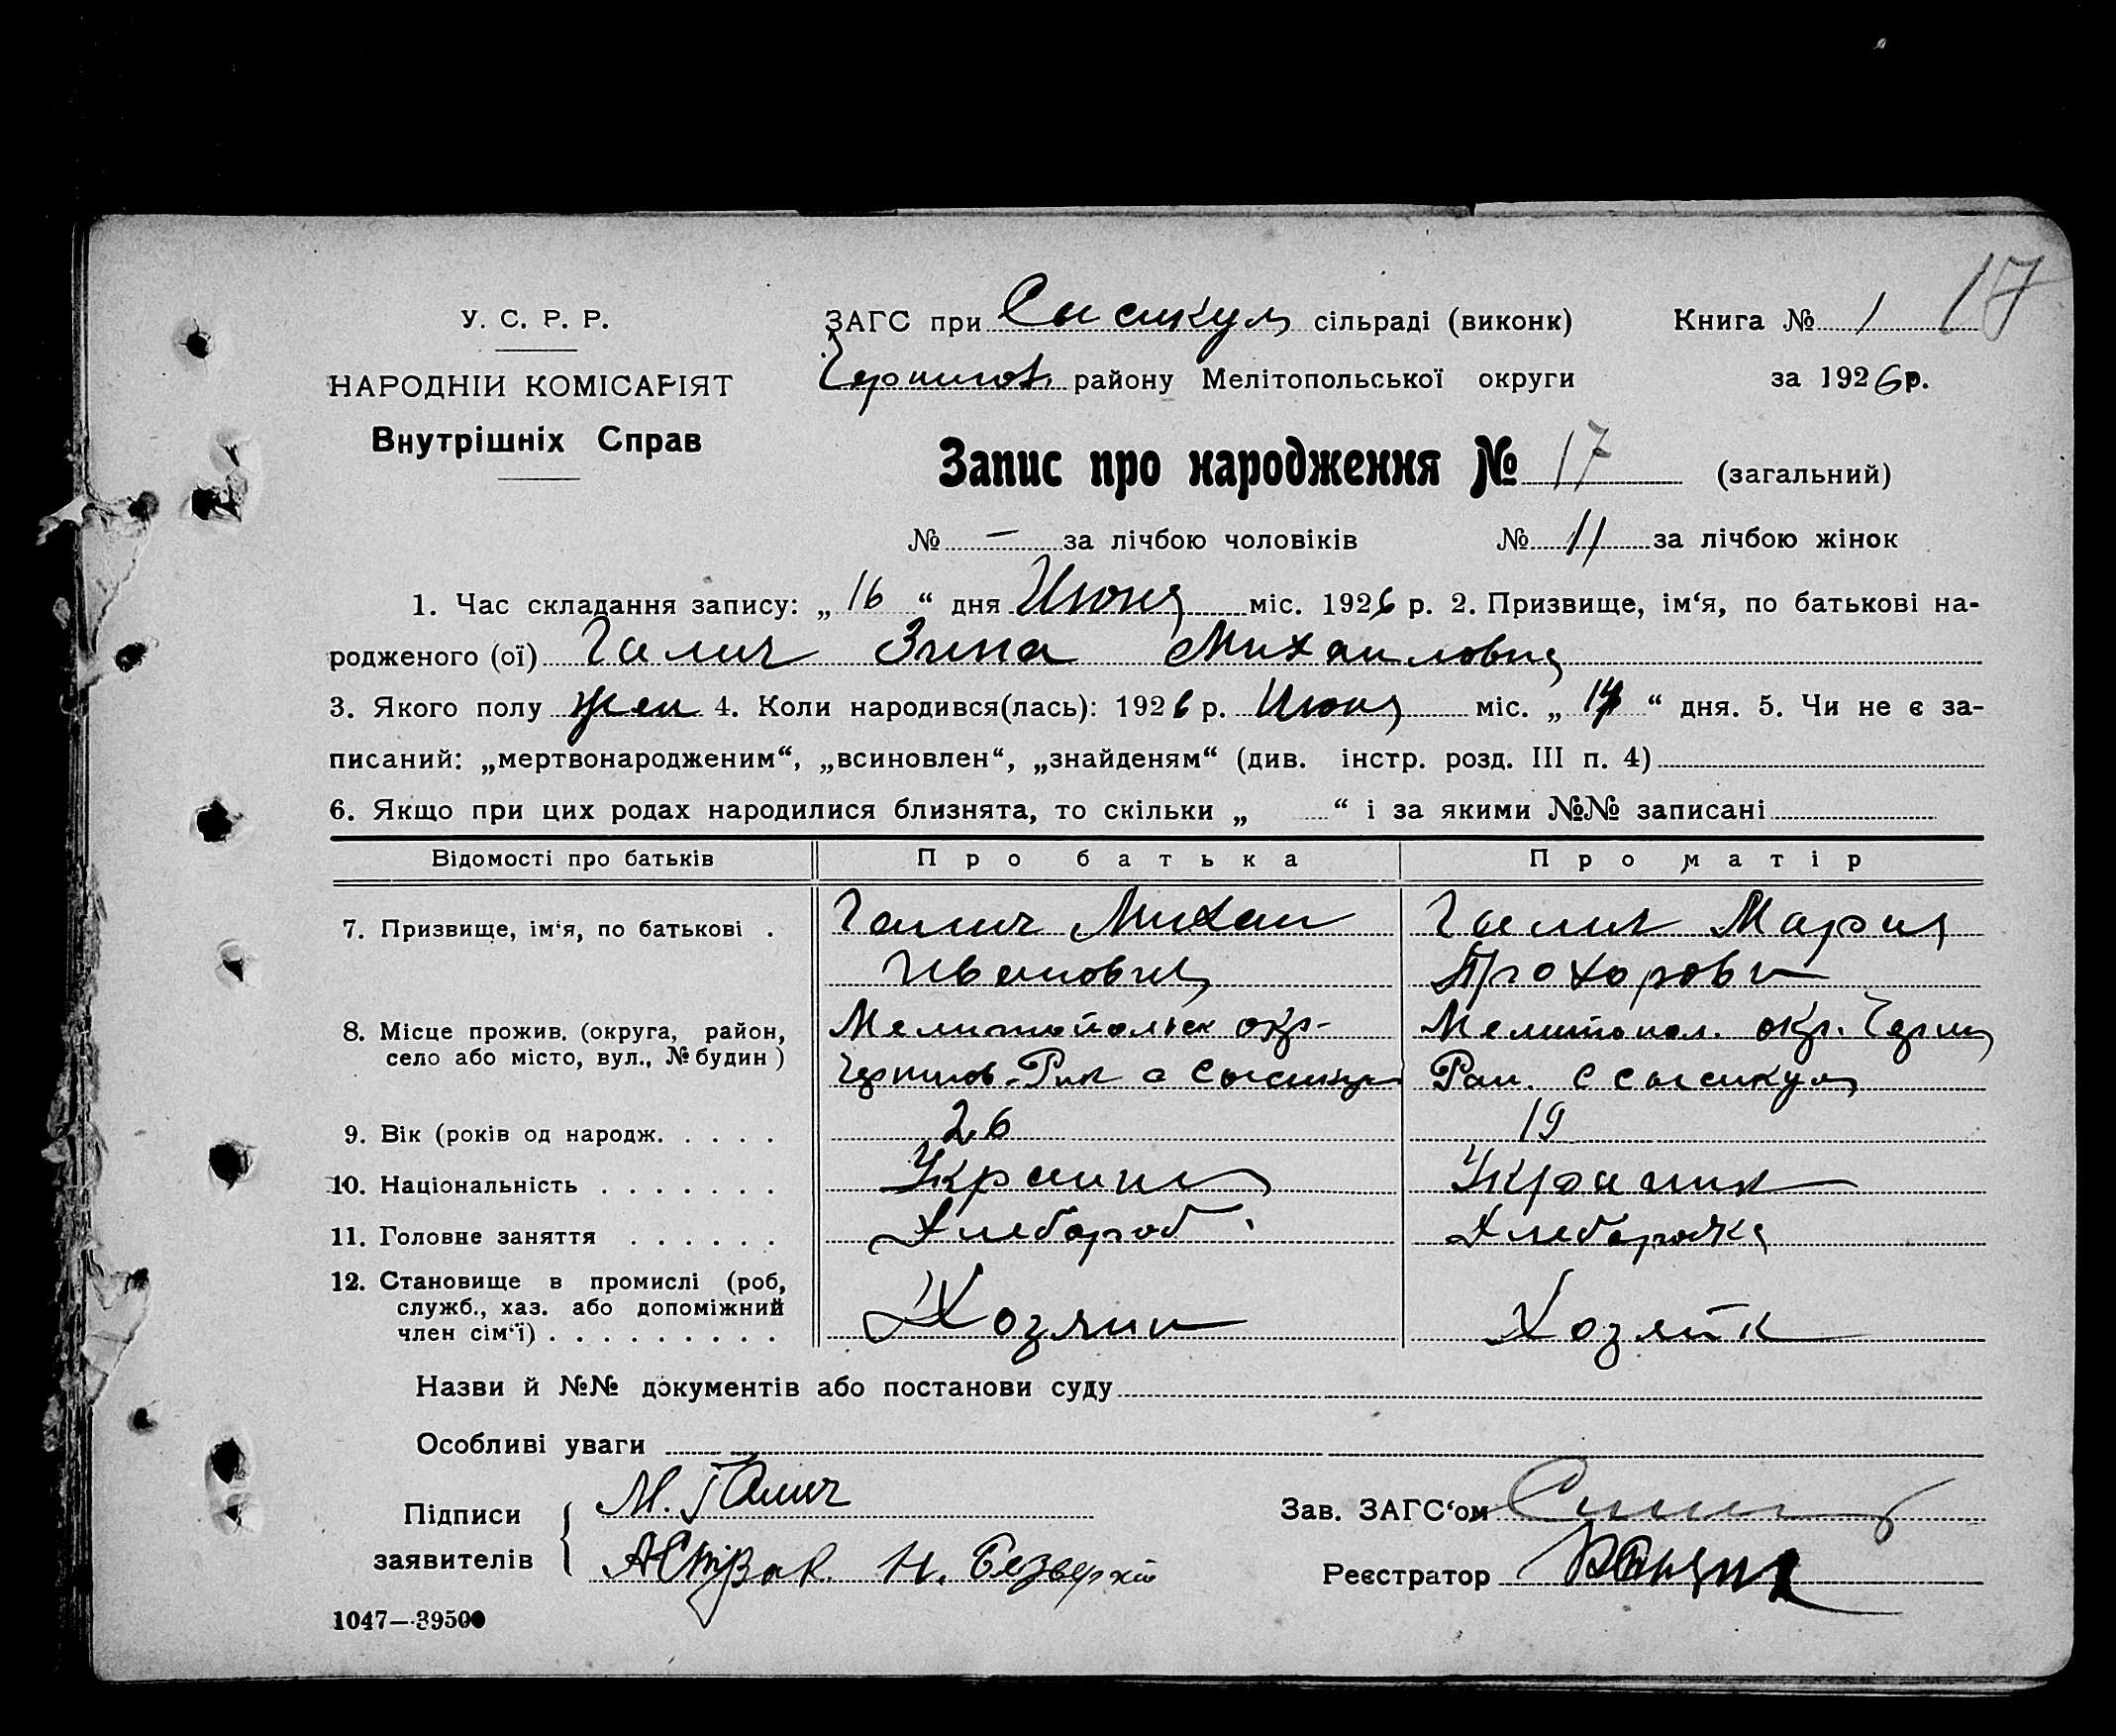 17
У. С. Р. Р.
НАРОДНІЙ КОМІСАРІЯТ
Внутрішніх Справ
ЗАГС при Сысикул сільраді (виконк)
Книга № 1
Чернигов. району Мелітопольської округи
за 1926 р.
Запис про народження № 17 (загальний)
№ — за лічбою чоловіків № 11 за лічбою жінок
1. Час складання запису: „16“ дня Июня міс. 1926 р. 2. Призвище, ім‘я, по батькові на-
родженого (ої) Галич Зина Михаиловна
3. Якого полу жен 4. Коли народився(лась): 1926 р. Июня міс. „ “ дня. 5. Чи не є за-
писаний: „мертвонародженим“, „всиновлен“, „знайденям“ (див. інстр. розд. III п. 4)
6. Якщо при цих родах народилися близнята, то скільки „ “ і за якими №№ записані
Відомості про батьків Про батька Про матір
7. Призвище, ім‘я, по батькові . Галич Михаи Галич Мария
Иванович Прохоровн
8. Місце прожив. (округа, район, Мелитопольск окр- Мелитопол. окр. Черни
село або місто, вул., № будин) Чернигов. Рик с Сысикул Раи. с Сысикул
9. Вік (років од народж. . . . . 26 19
10. Національність . . . . . . . Украин Украинк
11. Головне заняття . . . . . . Хлебороб Хлеборобка
12. Становище в промислі (роб, Хозяин Хозяйк
служб., хаз. або допоміжний
член сім‘ї) . . . . . . . . .
Назви й №№ документів або постанови суду
Особливі уваги
Підписи заявителів
М. Галич
Н. Безверхій
Зав. ЗАГС‘ом
Реєстратор
1047—39500